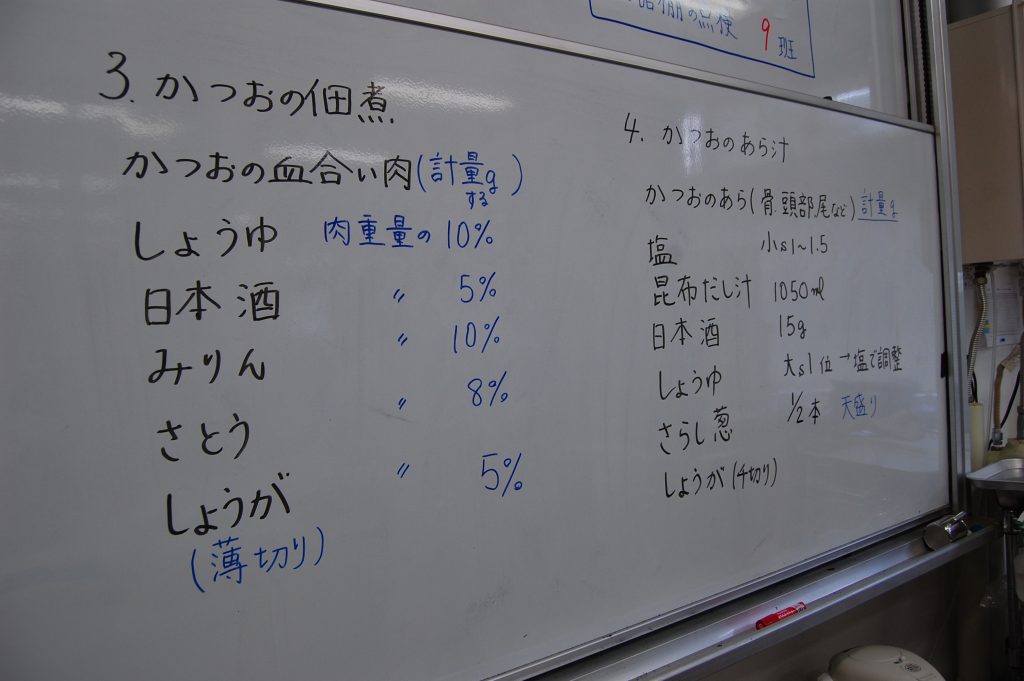 の点検 9班
3. かつおの佃煮
かつおの血合い肉(計量gする)
しょうゆ 肉重量の 10%
日本酒 〃 5%
みりん 〃 10%
さとう 〃 8%
しょうが 〃 5%
(薄切り)
4. かつおのあら汁
かつおのあら(骨.頭部尾など)計量g
塩 小s1~1.5
昆布だし汁 1050ml
日本酒 15g
しょうゆ 大s1位→塩で調整
さらし葱 1/2本 天盛り
しょうが(千切り)